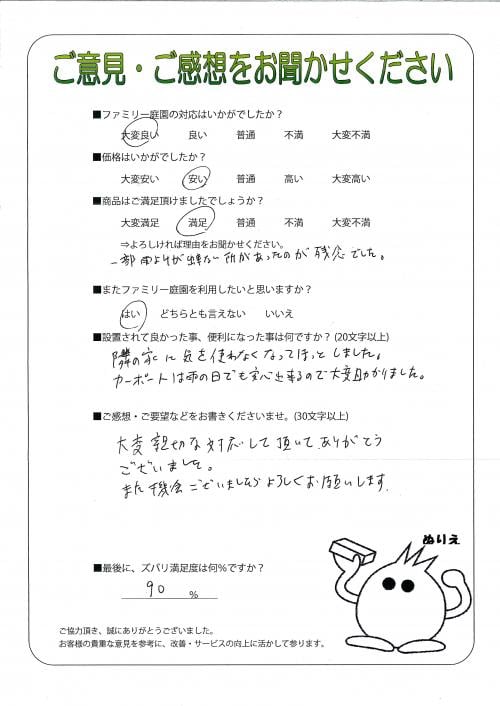 ご意見・ご感想をお聞かせください
■ファミリー庭園の対応はいかがでしたか？
大変良い 良い 普通 不満 大変不満
■価格はいかがでしたか？
大変安い 安い 普通 高い 大変高い
■商品はご満足頂けましたでしょうか？
大変満足 満足 普通 不満 大変不満
⇒よろしければ理由をお聞かせください。
一部 が出ない所があったのが残念でした。
■またファミリー庭園を利用したいと思いますか？
はい どちらとも言えない いいえ
■設置されて良かった事、便利になった事は何ですか？(20文字以上)
隣の家に気を使わなくなってほっとしました。
カーポートは雨の日でも 出来るので大変助かりました。
■ご感想・ご要望などをお書きくださいませ。(30文字以上)
大変親切な対応して頂いてありがとう
ございました。
また機会ございましたらよろしくお願いします
ぬりえ
■最後に、ズバリ満足度は何%ですか？
90 %
ご協力頂き、誠にありがとうございました。
お客様の貴重な意見を参考に、改善・サービスの向上に活かして参ります。